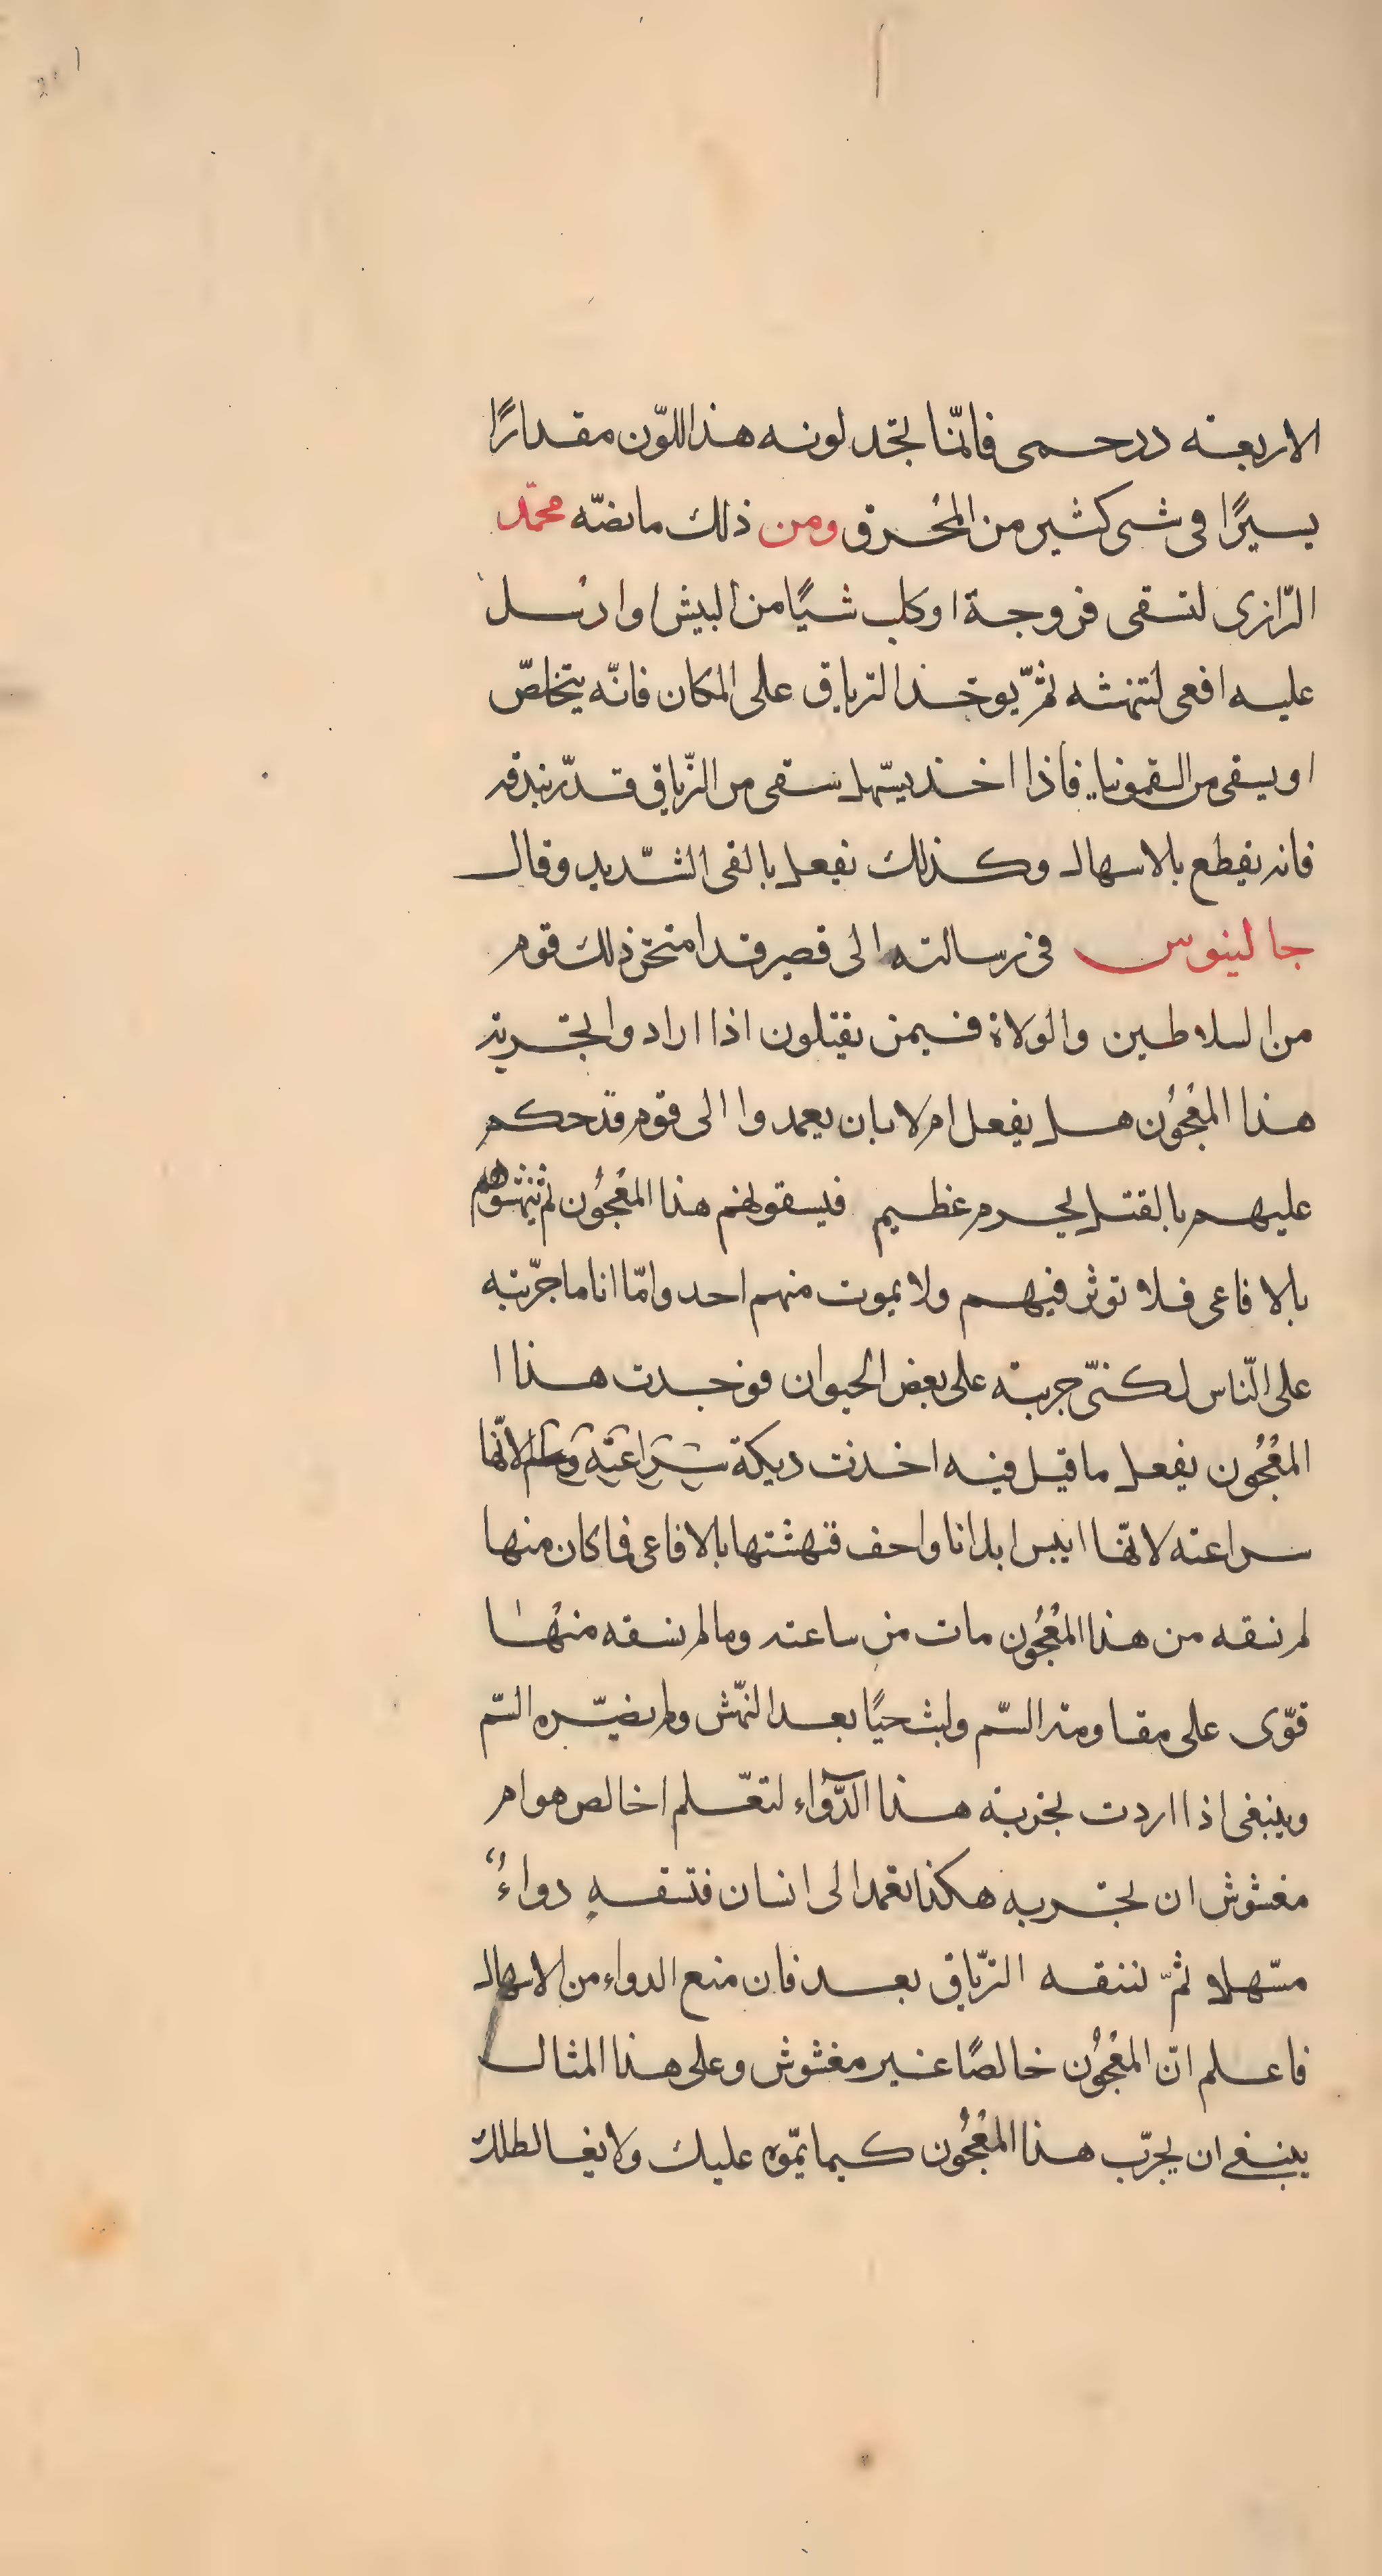 الاربعة دىرحمى فانمّا تجد لونه هذا اللّون مقدارًا
يسيرًا فى شى كثير من المُحرق ومن ذلك ما نصّه محمّد
الرّازى لتسقى فروجة او كلب شيًا من البيش او ارسل
عليه افعى لتنهشه ثمّ يوخذ الترياق على المكان فانّه يتخلصّ
او يسقى من السقمونيا فاذا اخذ يسّهل سقى من الترّياق قدّر بندقه
فانه يقطع بالاسهال وكذلك يفعل بالقى الشّديد وقال
جالينوس فى رسالته الى قصير قد امتحن ذلك قوم
من السلاطين والولاة فيمن يقتلون اذا ارادوا تجربة
هذا المعُجوُن هل يفعل ام لا بان يعمدوا الى قوم قد حكم
عليهم بالقتل لجرم عظيم فيسقونهم هذا المعُجوُن ثم ينهشوهم
بالافاعى فلا توثر فيهم ولا يموت منهم احد وامّا انا ما جرّبته
على النّاس لكنّى جربته على بعض الحيوان فوجدت هذا ا
المعُجُون يفعل ما قيل فيه اخذت ديكة سراعته لانّها
سراعته لانّها ايبس ابدانا واخف فنهشتها بالافاعى فما كان منها
لم نسقه من هذا المعُجُون مات من ساعته وما لم نسقه منهُا
قوّى على مقاومة السّم ولبث حيًا بعد النّهش ولم يضيّره السّم
وينبغى اذا اردت تجربة هذا الدّواء لتعّلم اخالص هو ام
مغشوش ان تجربه هكذا تعمد الى انسان فتسقيه دواءً
مسّهلا ثمّ تسقه الترّياق بعد فان منع الدواء من الاسهال
فاعلم انّ المعُجوُن خالصًا غير مغشوش وعلى هذا المثال
ينبغى ان يجرّب هذا المعُجوُن كيما يمّوه عليك ولا يغالطك